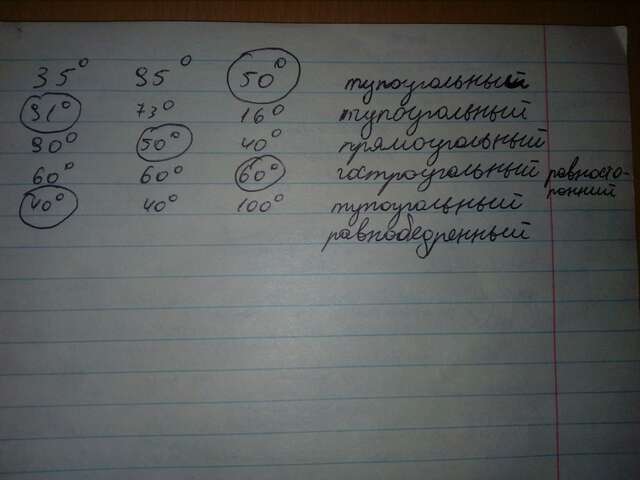 35° 95° 50° тупоугольный
91° 73° 16° тупоугольный
90° 50° 40° прямоугольный
60° 60° 60° гостроугольный равносто-
ронний
40° 40° 100° тупоугольный
равнобедренный